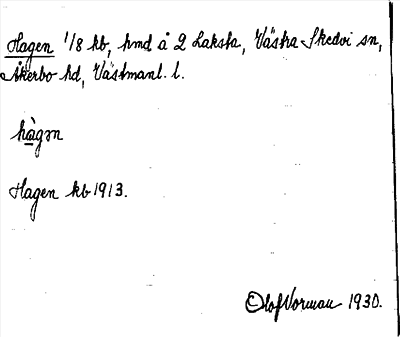 Hagen 1/8 kb, hmd å 2 Laksta, Västra Skedvi sn,
Åkerbo hd, Västmanl. l.
hàgən
Hagen kb 1913.
Olof Norman 1930.